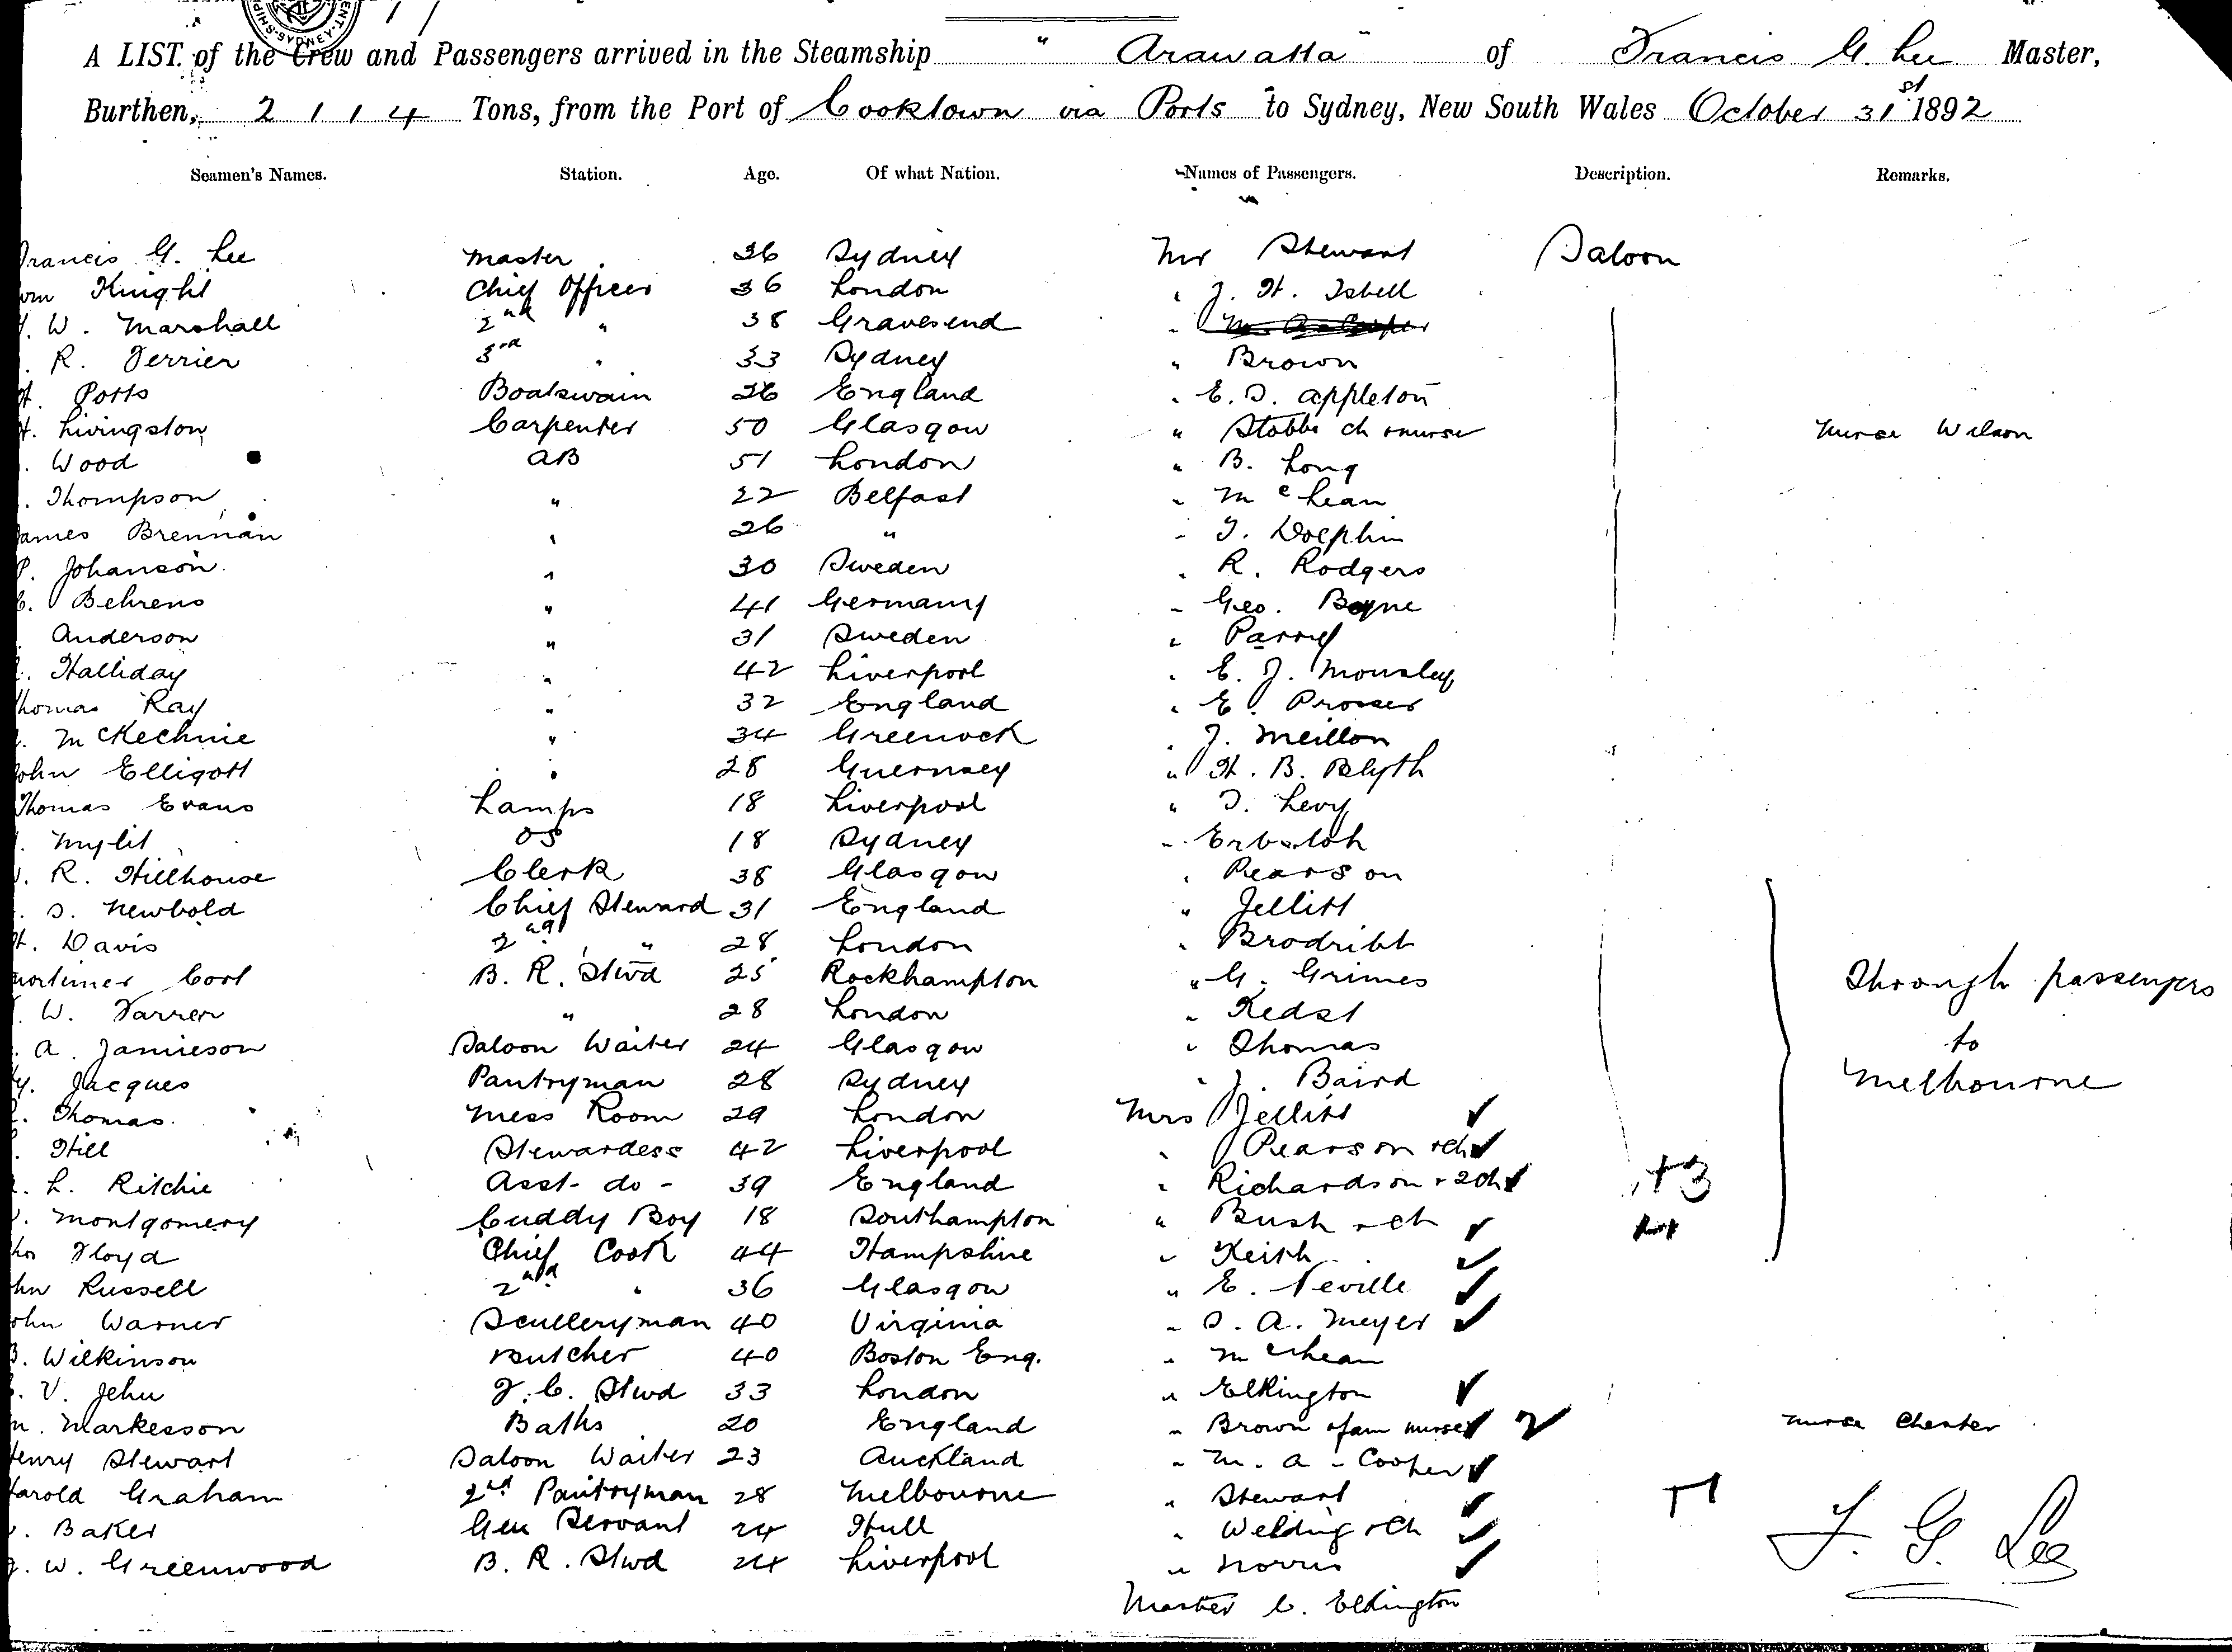 A LIST of the Crew and Passengers arrived in the Steamship "Arawatta" of Francis G. Lee Master,
Burthen, 2114 Tons, from the Port of Cooktown via Ports to Sydney, New South Wales October 31st 1892
Seamen's Names. Station. Age. Of what Nation. Names of Passengers. Description. Remarks.
Francis G. Lee Master 36 Sydney Mr Stewart Saloon
Knight Chief Officer 36 London " J. H. Isbell
W. Marshall 2nd " 38 Gravesend "
R. Ferrier 3rd " 33 Sydney " Brown
H. Potts Boatswain 26 England " E. S. Appleton
H. Livingston Carpenter 50 Glasgow " Stobbs ch & nurse Nurse Wilson
Wood AB 51 London " B. Long
Thompson " 22 Belfast " McLean
James Brennan " 26 " " T. Dolphin
P. Johanson " 30 Sweden " R. Rodgers
C. Behrens " 41 Germany " Geo. Bayne
Anderson " 31 Sweden " Parry
Halliday " 42 Liverpool " E. J. Mousley
Thomas Ray " 32 England " E. Prosser
McKechnie " 34 Greenock " J. Meillon
John Elligott " 28 Guernsey " H. B. Blyth
Thomas Evans Lamps 18 Liverpool " S. Levy
OS 18 Sydney "
R. Hillhouse Clerk 38 Glasgow " Pearson
S. Newbold Chief Steward 31 England " Jellitt
H. Davis 2nd " 28 London " Brodribb
Mortimer Cort B. R. Stwd 25 Rockhampton " G. Grimes
W. Farrer " 28 London " Kedst Through passengers
A. Jamieson Saloon Waiter 24 Glasgow " Thomas to
Hy. Jacques Pantryman 28 Sydney " J. Baird Melbourne
Thomas. Mess Room 29 London Mrs Jellitt ✓
Hill Stewardess 42 Liverpool " Pearson & ch ✓
L. Ritchie Asst - do - 39 England " Richardson & 2 ch ✓ +3
Montgomery Cuddy Boy 18 Southampton " Bush & ch ✓
Floyd Chief Cook 44 Hampshire " Keith ✓
John Russell 2nd " 36 Glasgow " E. Neville ✓
John Warner Sculleryman 40 Virginia " S. A. Meyer ✓
B. Wilkinson Butcher 40 Boston Eng. " McLean
V. Jehu F. C. Stwd 33 London " Elkington ✓
Markesson Baths 20 England " Brown & fam nurse ✓ 2 Nurse Chester
Henry Stewart Saloon Waiter 23 Auckland " M. A. Cooper ✓
Harold Graham 2nd Pantryman 28 Melbourne " Stewart ✓
Baker Gen Servant 24 Hull " Welding & ch ✓ F. G. Lee
W. Greenwood B. R. Stwd 24 Liverpool " Norris ✓
Master C. Elkington